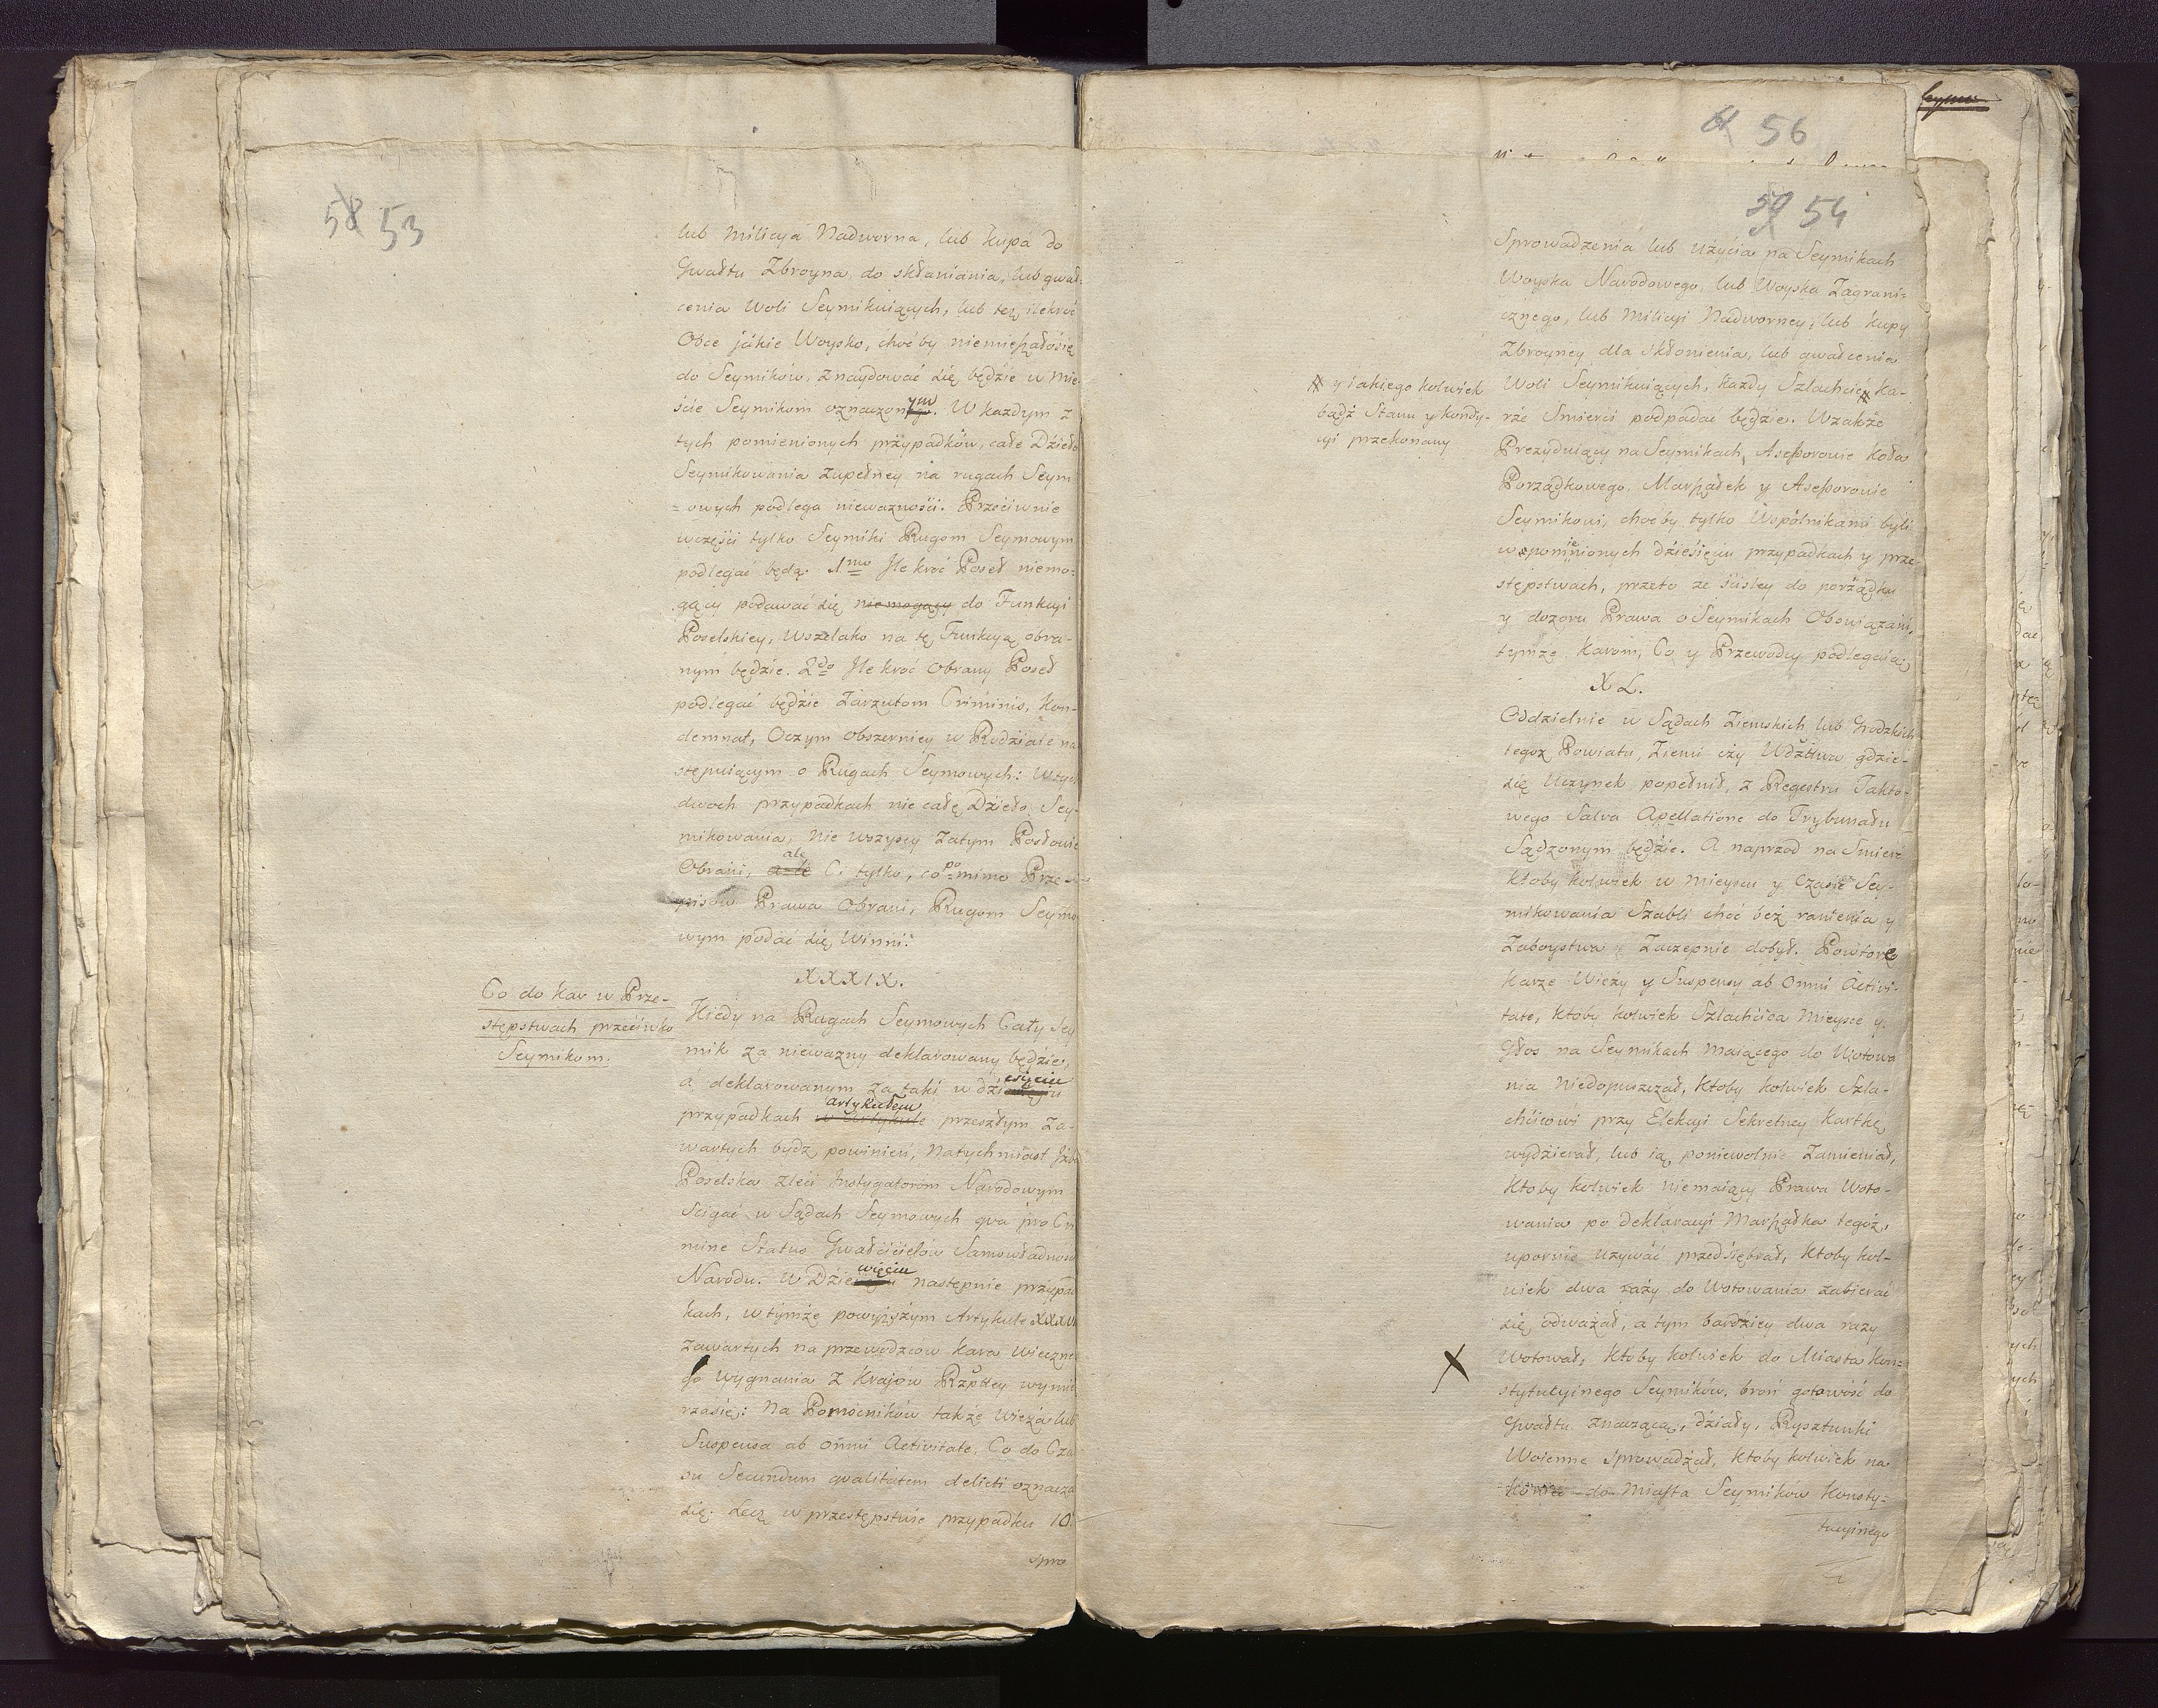 58 53
lub Milicya Nadworna, lub kupa do
Gwałtu Zbroyna, do skłaniania, lub gwał-
cenia Woli Seymikuiących, lub też ilekroć
Obce jakie Woysko, choćby niemięszałosię
do Seymików, znaydować się będzie w Mie-
ście Seymikom oznaczonym. W każdym z
tych pomienionych przypadków, całe Dzieło
Seymikowania zupełney na rugach Seym
=owych podlega nieważności. Przeciwnie
wczęści tylko Seymiki Rugom Seymowym
podlegać będą. 1mo Ile kroć Poseł niemo-
gący podawać się niemogący do Funkcyi
Poselskiey, wszelako na tę Funkcyą obra-
nym będzie. 2do Ile kroć obrany Poseł
podlegać będzie Zarzutom Criminis, Kon-
demnat, Oczym obszerniey w Rodziale na
stępuiącym o Rugach Seymowych: Wtych
dwoch przypadkach nie całe Dzieło Sey-
mikowania, nie wszyscy zatym Posłowie
Obrani, ale ci tylko, co po mimo Prze-
pisów Prawa Obrani, Rugom Seymo
wym podać się Winni.
XXXIX.
Co do Kar w Prze-
stępstwach przeciwko
Seymikom.
Kiedy na Rugach Seymowych Cały Sey
mik za nieważny deklarowany będzie,
a deklarowanym za taki w dziesięciu
przypadkach w Artykule Artykułem przeszłym Za-
wartych bydź powinień, Natychmiast Izba
Poselska zleci Instygatorom Narodowym
Scigać w Sądach Seymowych qva pro Cri
mine Status Gwałcicielów Samowładności
Narodu. W Dziewięciu następnie przypad
kach, w tymże powyższym Artykule XXXVI
zawartych na przewodzcow kara wieczne
go wygnania z Kraiow Rzpltey wymie
rzasię: Na Pomocników także Wieża lub
Suspensa ab omni Activitate, Co do Cza
su Secundum qvalitatem delicti oznacza
się. Lecz w przestępstwie przypadku 10.
Spro
61 56
59 54
Sprowadzenia lub użycia na Seymikach
Woyska Narodowego, lub Woyska Zagrani-
cznego, lub Milicyi Nadworney, lub kupy
Zbroyney dla skłonienia, lub gwałcenia
Woli Seymikuiących, każdy Szlachcic # ka-
# y iakiego kolwiek
bądź Stanu y kondy-
cyi przekonany
rże Smierci podpadać będzie. Wzakże
Prezyduiący na Seymikach, Asessorowie Koła
Porządkowego, Marszałek y Asessorowie
Seymikowi, choćby tylko Wspólnikami byli
wspomienionych dziesięciu przypadkach y prze-
stępstwach, przeto ze ścisley do porządku
y dozoru Prawa o Seymikach Obowiązani,
tymże Karom, Co y Przewodcy podlegaią
XL.
Oddzielnie w Sądach Ziemskich lub Grodzkich
tegoż Powiatu, Ziemi czy Wdztwa gdzie-
się Uczynek popełnił, z Regestru Takto-
wego Salva Apellatione do Trybunału
Sądzonym będzie. A naprzod na Smierć
Ktoby kolwiek w mieyscu y Czasie Sey-
mikowania Szabli choć beż ranienia y
Zaboystwa Zaczepnie dobył. Powtore
Karze Wieży y Suspensy ab Omni Activi-
tate, Ktoby kolwiek Szlachcica Mieysce y
Głos na Seymikach maiącego do Wotowa
nia Niedopuszczał, Ktoby kolwiek Szla-
chcicowi przy Elekcyi Sekretney kartkę
wydzierał, lub ią poniewolnie Zamieniał,
Ktoby kolwiek niemaiący Prawa Woto-
wania po deklaracyi Marszałka tegoż,
upornie używać przedsiębrał, Ktoby kol-
wiek dwa razy do Wotowania zabierać
się odważał, a tym bardziey dwa razy
Wotował, Ktoby kolwiek do Miasta Kon-
stytucyinego Seymików, broń gotowość do
Gwałtu znaczącą, działy, Rysztunki
Woienne Sprowadzał, Ktoby kolwiek na
koniec do Miasta Seymików Konsty-
tucyinego